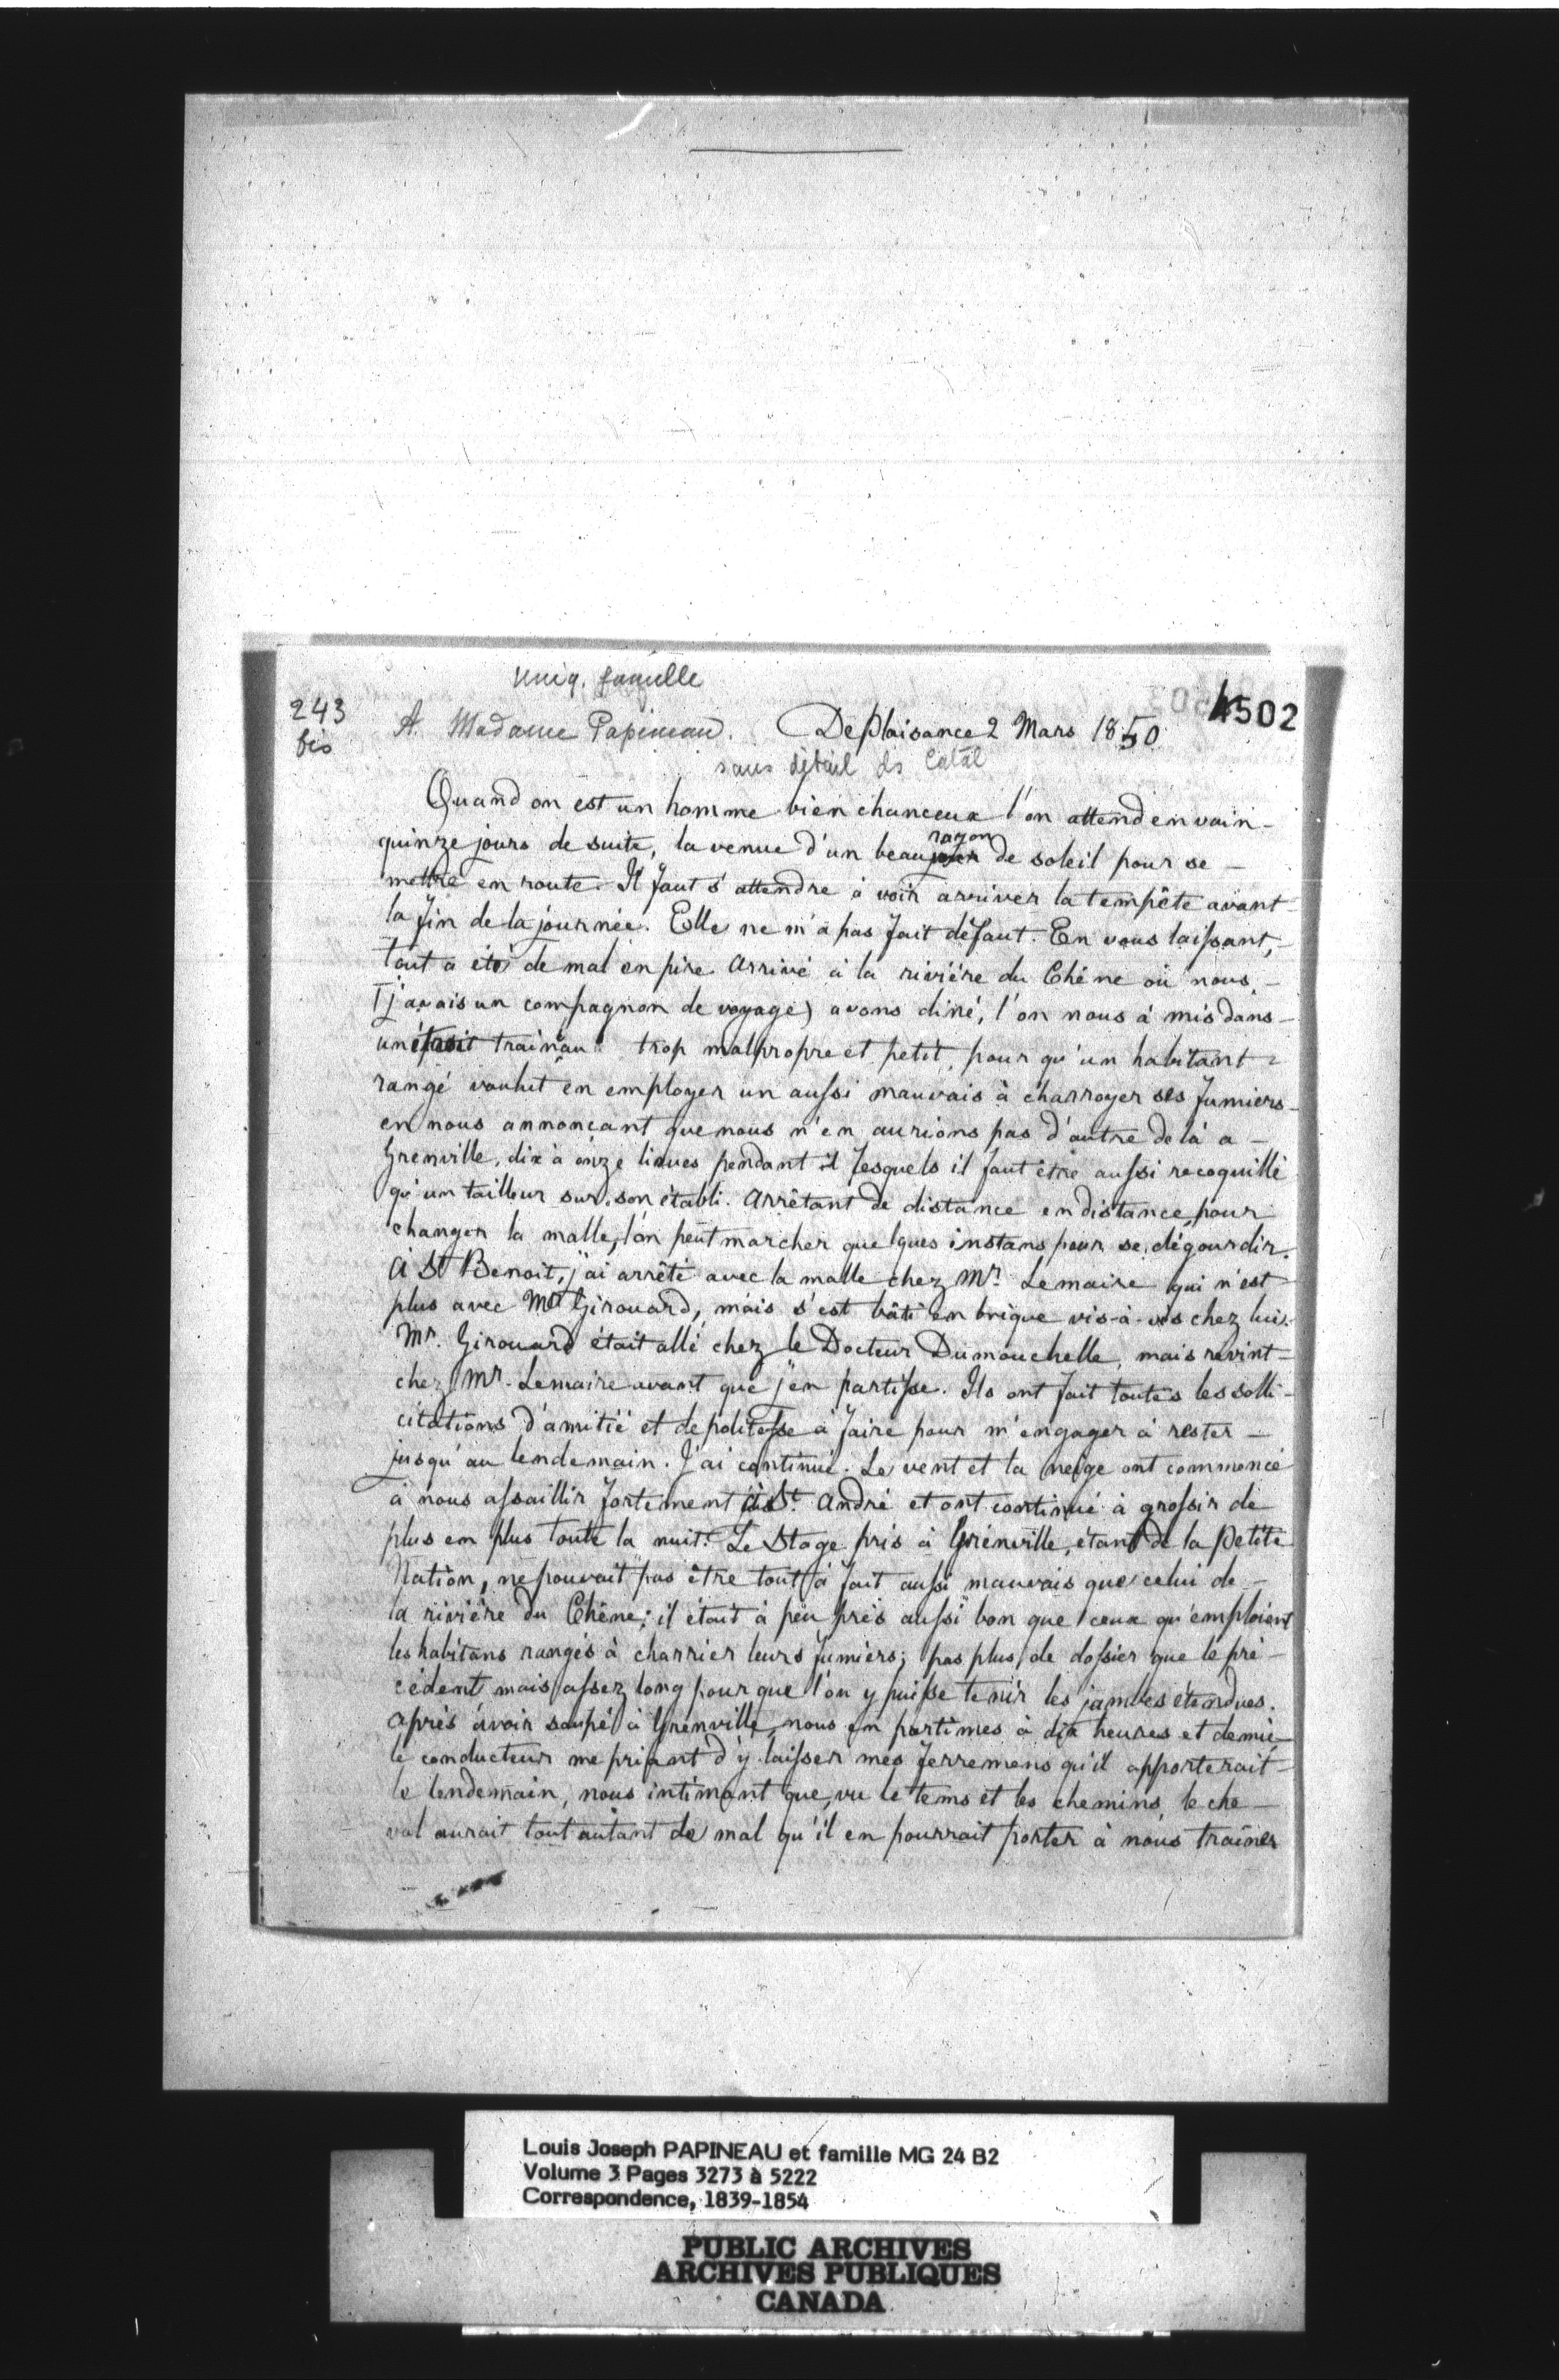 uniq. famille
243
bis
4502
A. Madame Papineau. De Plaisance 2 Mars 1850
sans détail ds Catal
Quand on est un homme bien chanceux l'on attend en vain -
quinze jours de suite, la venue d'un beau rayon de soleil pour se -
mettre en route. Il faut s'attendre à voir arriver la tempête avant -
la fin de la journée. Elle ne m'a pas fait défaut. En vous laissant, -
tout a été de mal en pire. Arrivé à la rivière du Chêne où nous -
(j'avais un compagnon de voyage) avons diné, l'on nous à mis dans -
un étroit traineau trop malpropre et petit, pour qu'un habitant =
rangé voulut en employer un aussi mauvais à charroyer ses fumiers -
en nous annonçant que nous n'en aurions pas d'autre de là a -
Grenville, dix à onze lieues pendant lesquels il faut être aussi recoquillé
qu'un tailleur sur son établi. Arrêtant de distance en distance, pour
changer la malle, l'on peut marcher quelques instans pour se dégourdir.
À St Benoit, j'ai arrêté avec la malle chez Mr. Lemaire qui n'est
plus avec Mr Girouard, mais s'est bâti en brique vis-à-vis chez lui.
Mr. Girouard était allé chez le Docteur Dumouchelle, mais revint -
chez Mr. Lemaire avant que j'en partisse. Ils ont fait toutes les solli -
citations d'amitié et de politesse à faire pour m'engager à rester -
jusqu'au lendemain. J'ai continué. Le vent et la neige ont commencé
à nous assaillir fortement à St. André et ont continué à grossir de
plus en plus toute la nuit. Le Stage pris à Grenville, étant de la Petite
Nation, ne pouvait pas être tout à fait aussi mauvais que celui de -
la rivière du Chêne; il était à peu près aussi bon que ceux qu'emploient
les habitans rangés à charrier leurs fumiers; pas plus de dossier que le pré -
cédent mais assez long pour que l'on y puisse tenir les jambes étendues.
après avoir soupé à Grenville, nous en partimes à dix heures et demie -
le conducteur me priant d'y laisser mes ferremens qu'il apporterait -
le lendemain, nous intimant que, vu le tems et les chemins, le che -
val aurait tout autant de mal qu'il en pourrait porter à nous traîner
Louis Joseph PAPINEAU et famille MG 24 B2
Volume 3 Pages 3273 à 5222
Correspondence, 1839-1854
PUBLIC ARCHIVES
ARCHIVES PUBLIQUES
CANADA